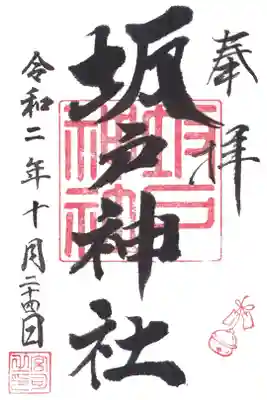 奉拝
坂戸神社
令和二年十月二十四日